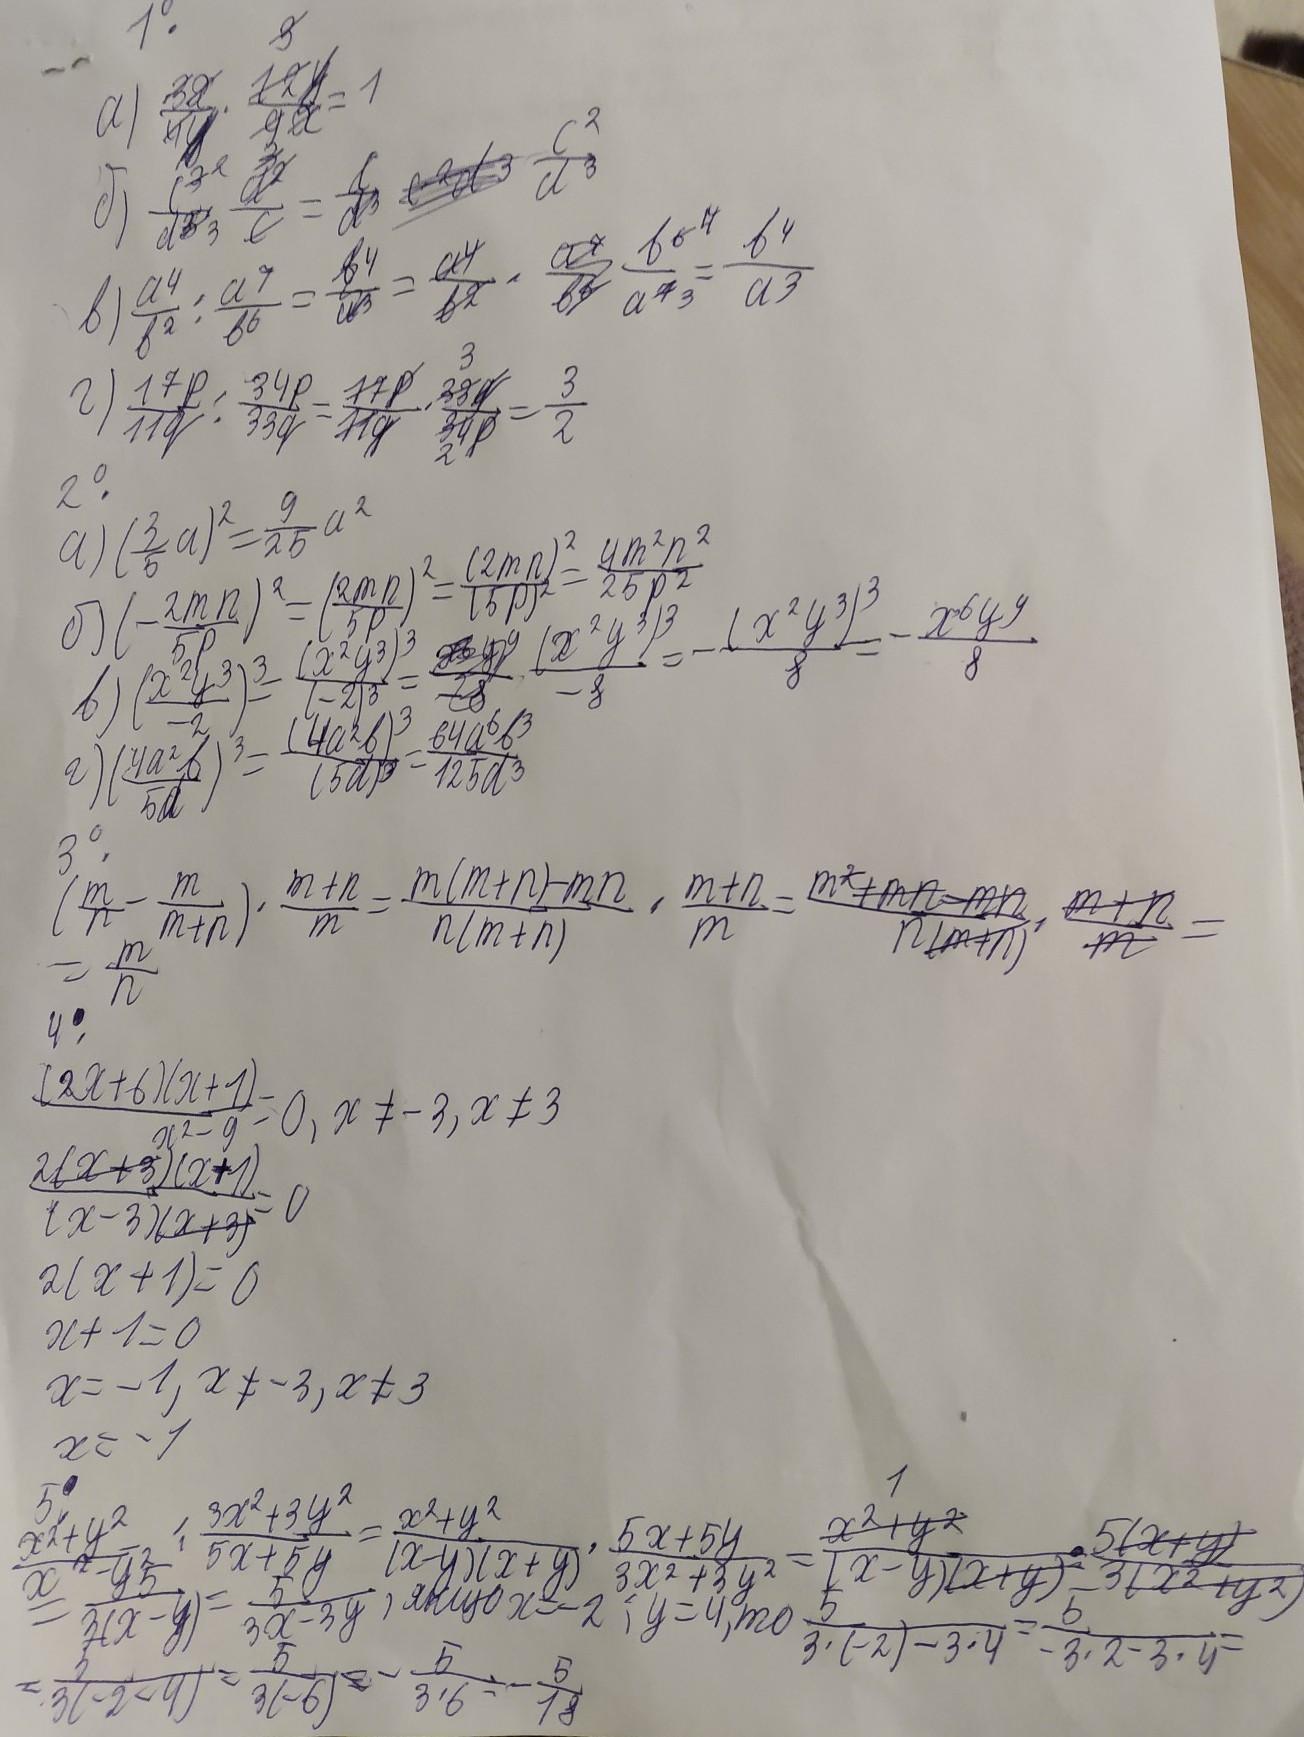 1°.
а) 3x/4y · 12y/9x = 1
б) c³/d⁵ · d²/c = c²/d³
в) a⁴/b² : a⁷/b⁶ = b⁴/a³ = a⁴/b² · b⁶/a⁷ = b⁴/a³
г) 17p/11q : 34p/33q = 17p/11q · 33q/34p = 3/2
2°.
а) (3/5 a)² = 9/25 a²
б) (-2mn/5p)² = (2mn/5p)² = (2mn)²/(5p)² = 4m²n²/25p²
в) (x²y³/-2)³ = (x²y³)³/(-2)³ = (x²y³)³/-8 = -(x²y³)³/8 = -x⁶y⁹/8
г) (4a²b/5d)³ = (4a²b)³/(5d)³ = 64a⁶b³/125d³
3°.
(m/n - m/(m+n)) · (m+n)/m = (m(m+n)-mn)/(n(m+n)) · (m+n)/m = (m²+mn-mn)/(n(m+n)) · (m+n)/m =
= m/n
4°.
(2x+6)(x+1)/(x²-9) = 0, x ≠ -3, x ≠ 3
2(x+3)(x+1)/((x-3)(x+3)) = 0
2(x+1) = 0
x+1=0
x = -1, x ≠ -3, x ≠ 3
x = -1
5°.
(x²+y²)/(x²-y²) : (3x²+3y²)/(5x+5y) = (x²+y²)/((x-y)(x+y)) · (5x+5y)/(3x²+3y²) = (x²+y²)/((x-y)(x+y)) · 5(x+y)/(3(x²+y²)) =
= 5/(3(x-y)) = 5/(3x-3y), якщо x = -2 ; y = 4, то 5/(3·(-2)-3·4) = 5/(-3·2-3·4) =
= 5/(3(-2-4)) = 5/(3(-6)) = -5/(3·6) = -5/18